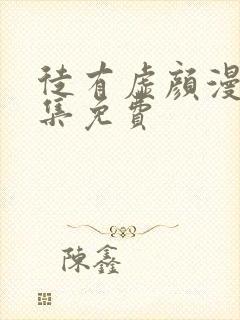 徒有虛顏漫
集免費
陳鑫